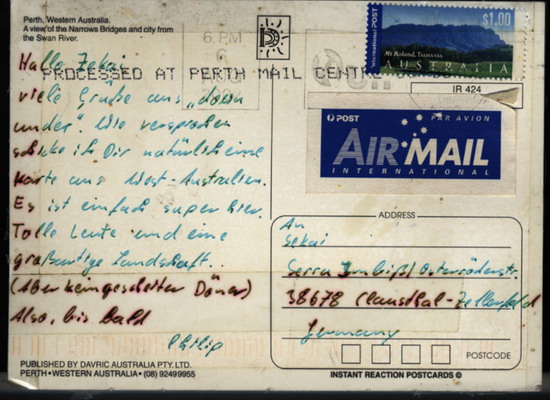 Perth, Western Australia.
A view of the Narrows Bridges and city from
the Swan River.
6 PM
6
PROCESSED AT PERTH MAIL CENTRE
International POST
$1.00
Mt Roland, TASMANIA
AUSTRALIA
IR 424
POST PAR AVION
AIR MAIL
INTERNATIONAL
Hallo Zekai
viele Grüße aus „down
under". Wie versprochen
schicke ich Dir natürlich eine
Karte aus West-Australien.
Es ist einfach super hier.
Tolle Leute und eine
großartige Landschaft..
(Aber kein gescheiter Döner)
Also, bis bald
Philip
ADDRESS
An
Sekai
Serra Imbiß/ Osteröderstr.
38678 Clausthal-Zellerfeld
Germany
POSTCODE
PUBLISHED BY DAVRIC AUSTRALIA PTY. LTD.
PERTH • WESTERN AUSTRALIA • (08) 92499955
INSTANT REACTION POSTCARDS ©